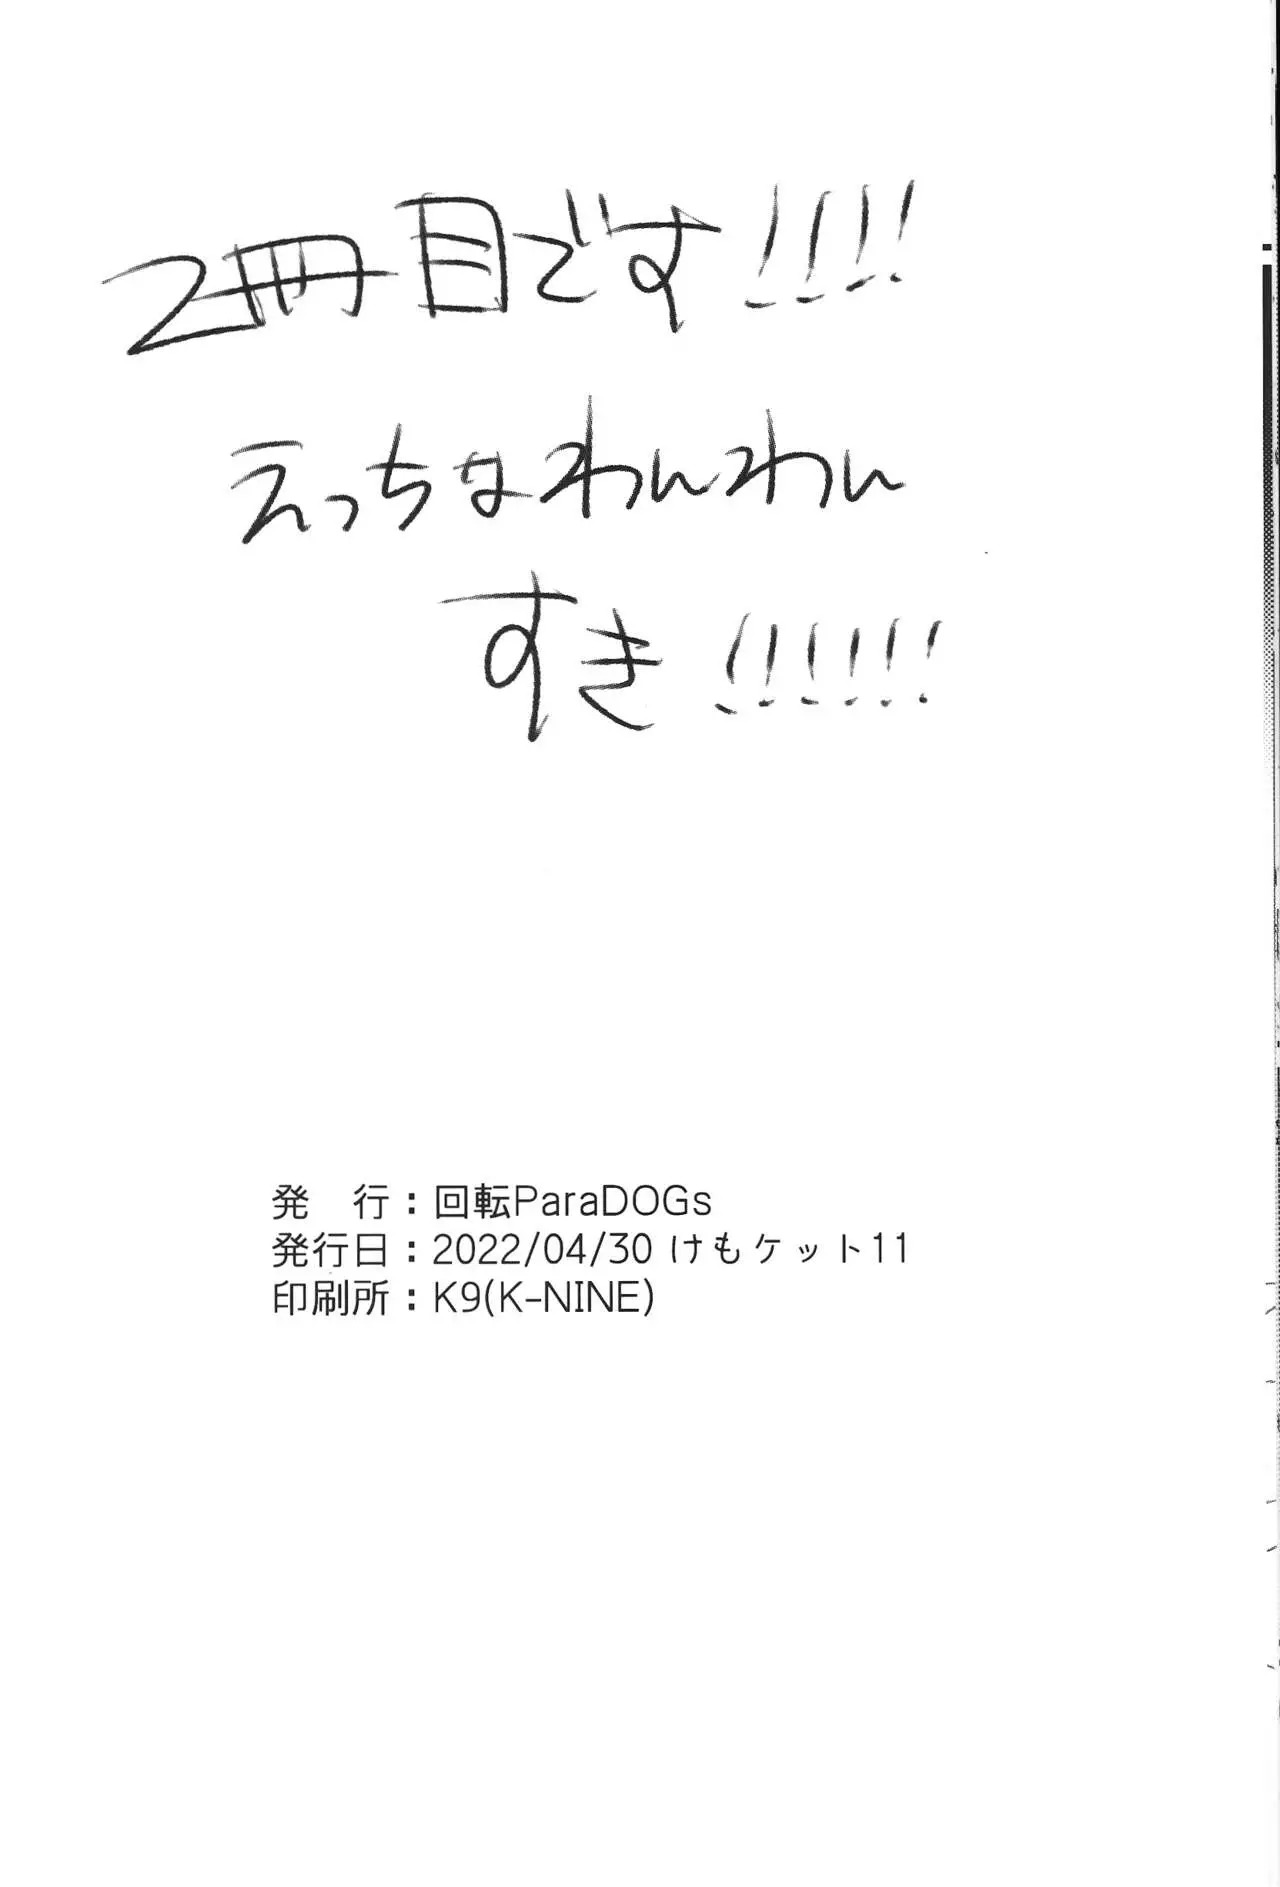 2冊目です!!!!
えっちなわんわん
すき!!!!!!
発　行：回転ParaDOGs
発行日：2022/04/30 けもケット11
印刷所：K9(K-NINE)